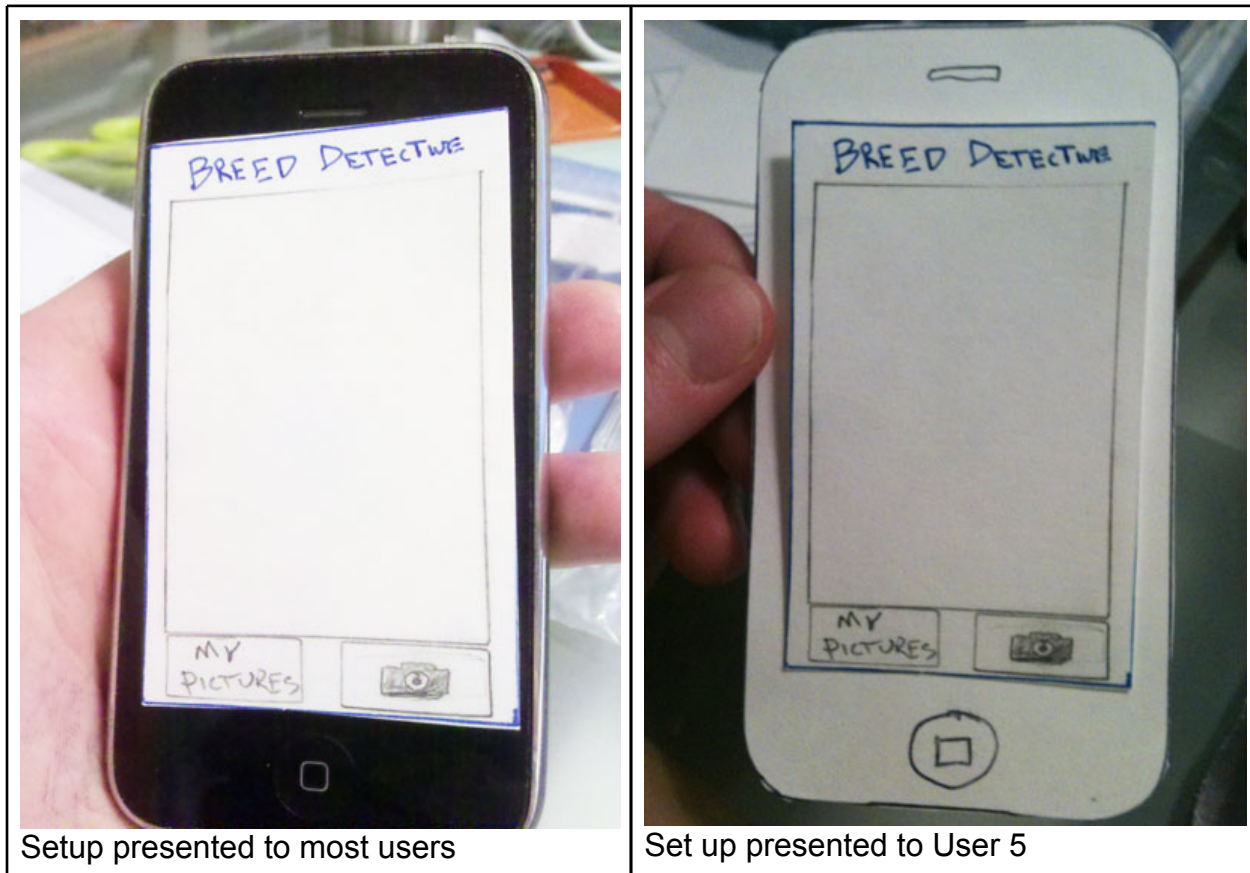 BREED DETECTIVE
MY
PICTURES
Setup presented to most users
BREED DETECTIVE
MY
PICTURES
Set up presented to User 5